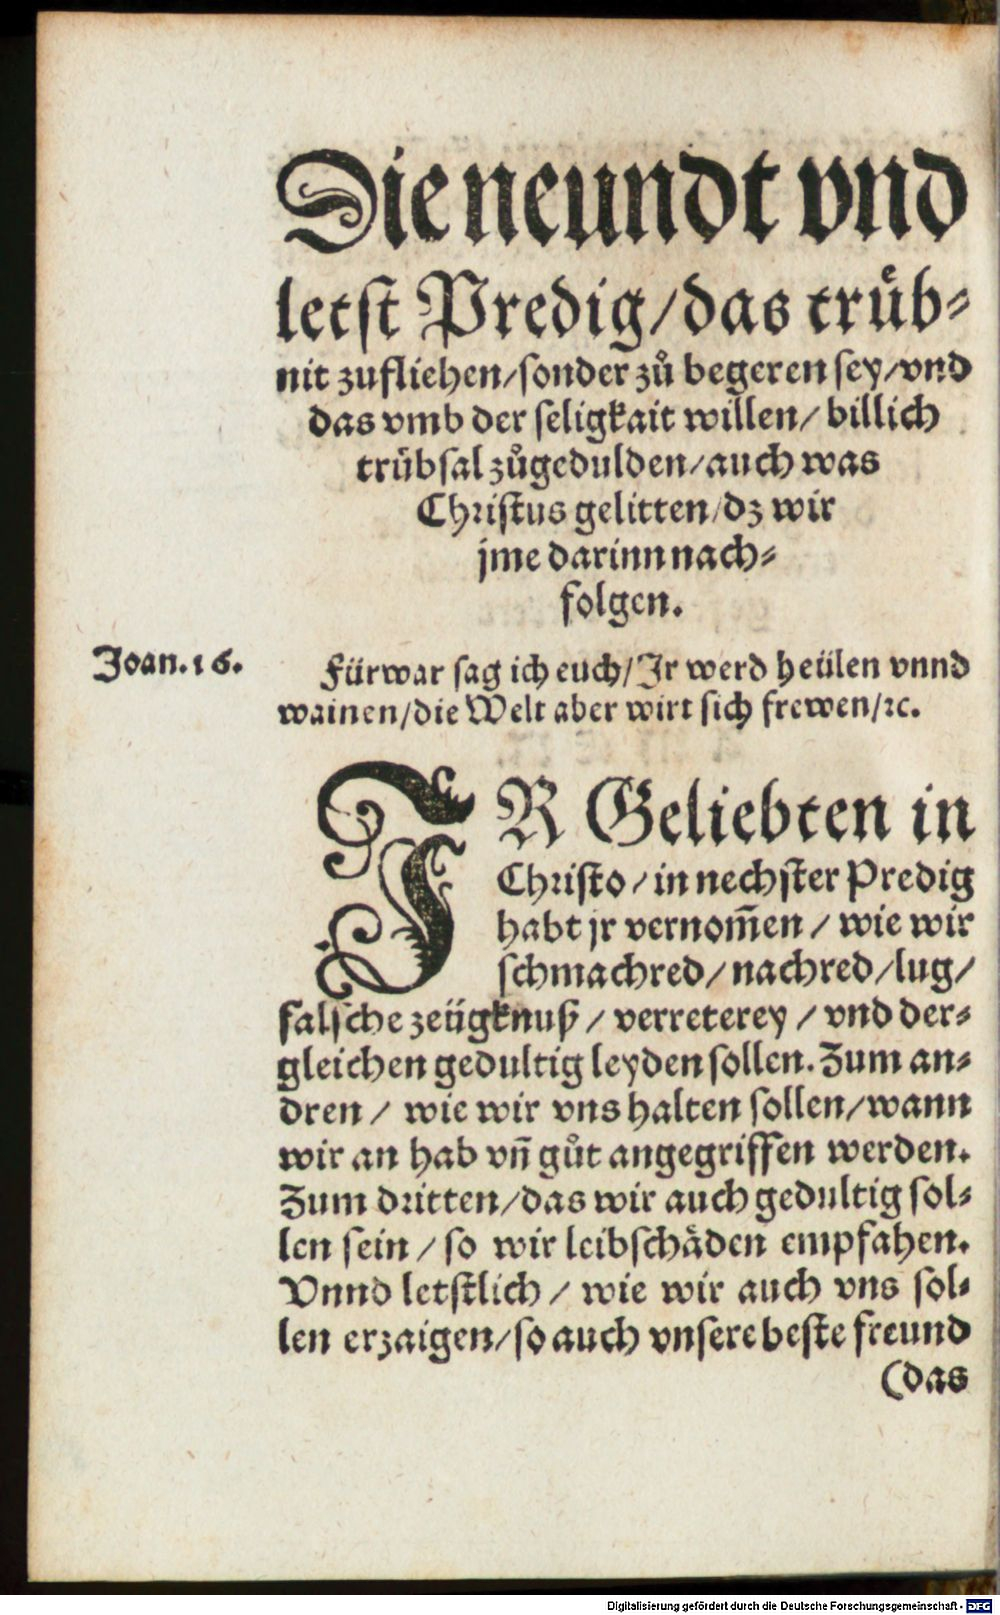 Die neundt vnd
letst Predig/das truͤb-
nit zufliehen/sonder zů begeren sey/vnd
das vmb der seligkait willen/ billich
trübsal zůgedulden/auch was
Christus gelitten/dz wir
jme darinn nach-
folgen.
Joan.16.
Fürwar sag ich euch/Ir werd heülen vnnd
wainen/die Welt aber wirt sich frewen/ꝛc.
IR Geliebten in
Christo/in nechster Predig
habt jr vernom̄en/ wie wir
schmachred/nachred/lug/
falsche zeügknuß/ verreterey/ vnd der-
gleichen gedultig leyden sollen. Zum an-
dren/ wie wir vns halten sollen/wann
wir an hab vn̄ gůt angegriffen werden.
Zum dritten/das wir auch gedultig sol-
len sein/ so wir leibschaͤden empfahen.
Vnnd letstlich/ wie wir auch vns sol-
len erzaigen/so auch vnsere beste freund
(das
Digitalisierung gefördert durch die Deutsche Forschungsgemeinschaft - DFG